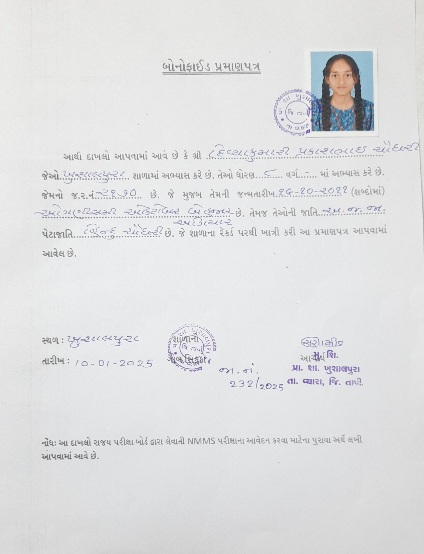 બોનોફાઈડ પ્રમાણપત્ર
આથી દાખલો આપવામાં આવે છે કે શ્રી દિવ્યાકુમારી પ્રકાશભાઈ ચૌધરી
જેઓ ખુશાલપુરા શાળામાં અભ્યાસ કરે છે. તેઓ ધોરણ ૮ વર્ગ - માં અભ્યાસ કરે છે.
જેમનો જ.ર.નં ૨૧૩૦ છે. જે મુજબ તેમની જન્મતારીખ ૧૯-૧૦-૨૦૧૧ (શબ્દોમાં)
ઓગણીસમી ઓક્ટોબર બે હજાર છે. તેમજ તેઓની જાતિ અ.જ.જા.
અગિયાર
પેટાજાતિ હિન્દુ ચૌધરી છે. જે શાળાના રેકર્ડ પરથી ખાત્રી કરી આ પ્રમાણપત્ર આપવામાં
આવેલ છે.
સ્થળ: ખુશાલપુરા શાળાનો
તારીખ: 10-01-2025 ગોળ સિક્કો
જા.નં.
232/2025
આચાર્ય
મુ. શિ.
પ્રા. શા. ખુશાલપુરા
તા. વ્યારા, જિ. તાપી.
નોંધ: આ દાખલો રાજ્ય પરીક્ષા બોર્ડ દ્વારા લેવાતી NMMS પરીક્ષાના આવેદન કરવા માટેના પુરાવા અર્થે લખી
આપવામાં આવે છે.